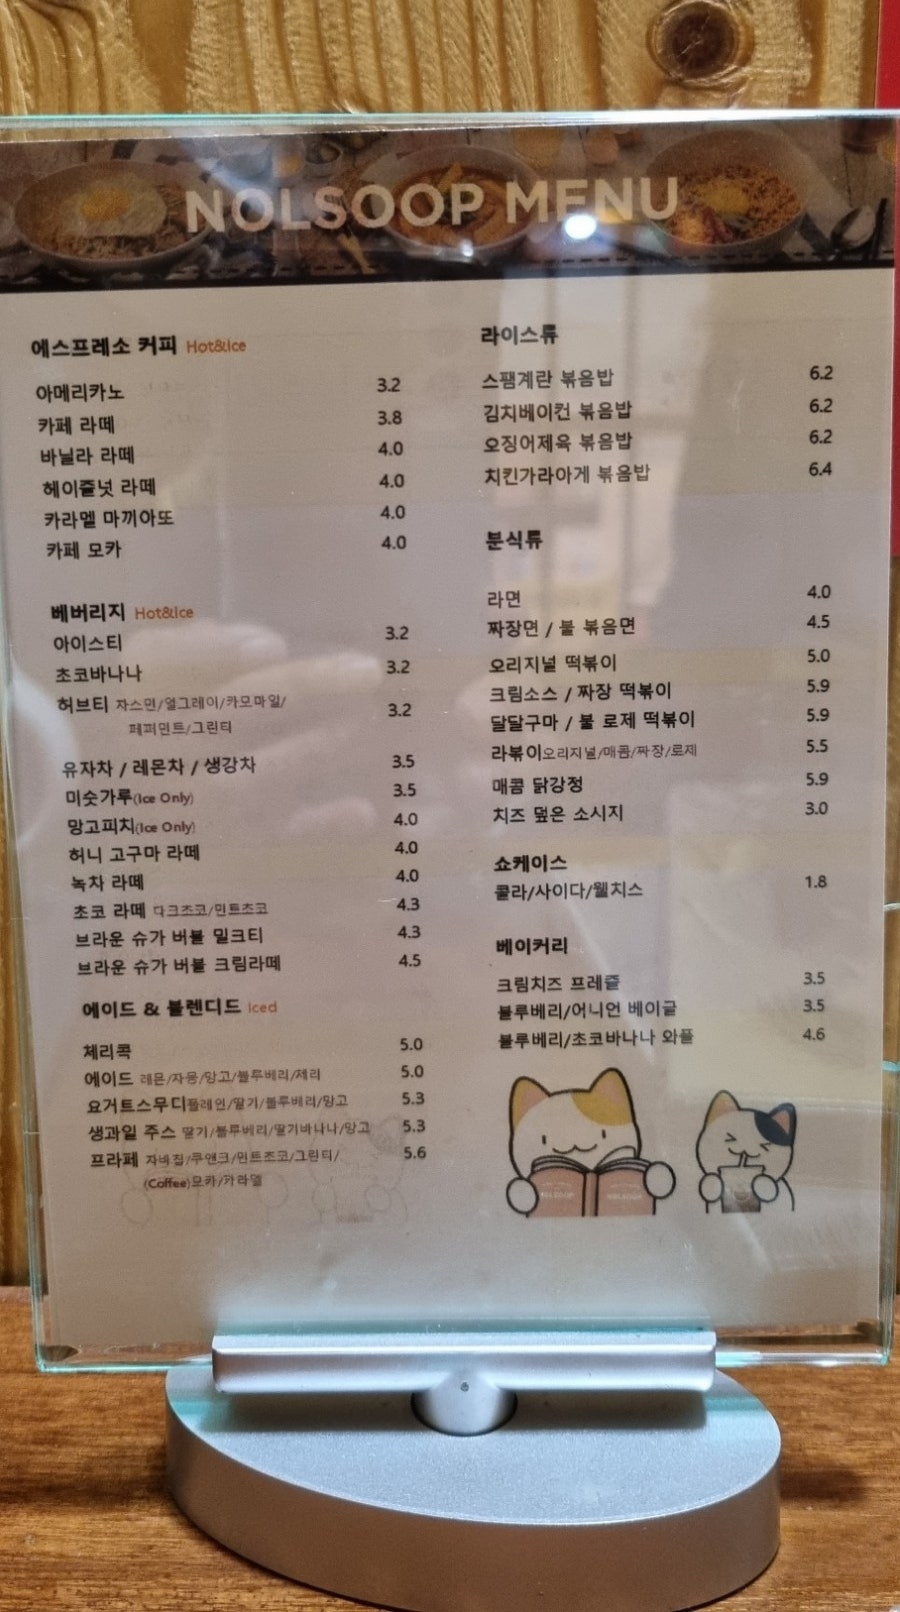 NOLSOOP MENU
에스프레소 커피 Hot&Ice
아메리카노 3.2
카페 라떼 3.8
바닐라 라떼 4.0
헤이즐넛 라떼 4.0
카라멜 마끼아또 4.0
카페 모카 4.0
베버리지 Hot&Ice
아이스티 3.2
초코바나나 3.2
허브티 자스민/얼그레이/카모마일/ 3.2
페퍼민트/그린티
유자차 / 레몬차 / 생강차 3.5
미숫가루(Ice Only) 3.5
망고피치(Ice Only) 4.0
허니 고구마 라떼 4.0
녹차 라떼 4.0
초코 라떼 다크초코/민트초코 4.3
브라운 슈가 버블 밀크티 4.3
브라운 슈가 버블 크림라떼 4.5
에이드 & 블렌디드 Iced
체리콕 5.0
에이드 레몬/자몽/망고/블루베리/체리 5.0
요거트스무디플레인/딸기/블루베리/망고 5.3
생과일 주스 딸기/블루베리/딸기바나나/망고 5.3
프라페 자바칩/쿠앤크/민트초코/그린티/ 5.6
(Coffee)모카/카라멜
라이스류
스팸계란 볶음밥 6.2
김치베이컨 볶음밥 6.2
오징어제육 볶음밥 6.2
치킨가라아게 볶음밥 6.4
분식류
라면 4.0
짜장면 / 불 볶음면 4.5
오리지널 떡볶이 5.0
크림소스 / 짜장 떡볶이 5.9
달달구마 / 불 로제 떡볶이 5.9
라볶이오리지널/매콤/짜장/로제 5.5
매콤 닭강정 5.9
치즈 덮은 소시지 3.0
쇼케이스
콜라/사이다/웰치스 1.8
베이커리
크림치즈 프레즐 3.5
블루베리/어니언 베이글 3.5
블루베리/초코바나나 와플 4.6
NOLSOOP NOLSOOP